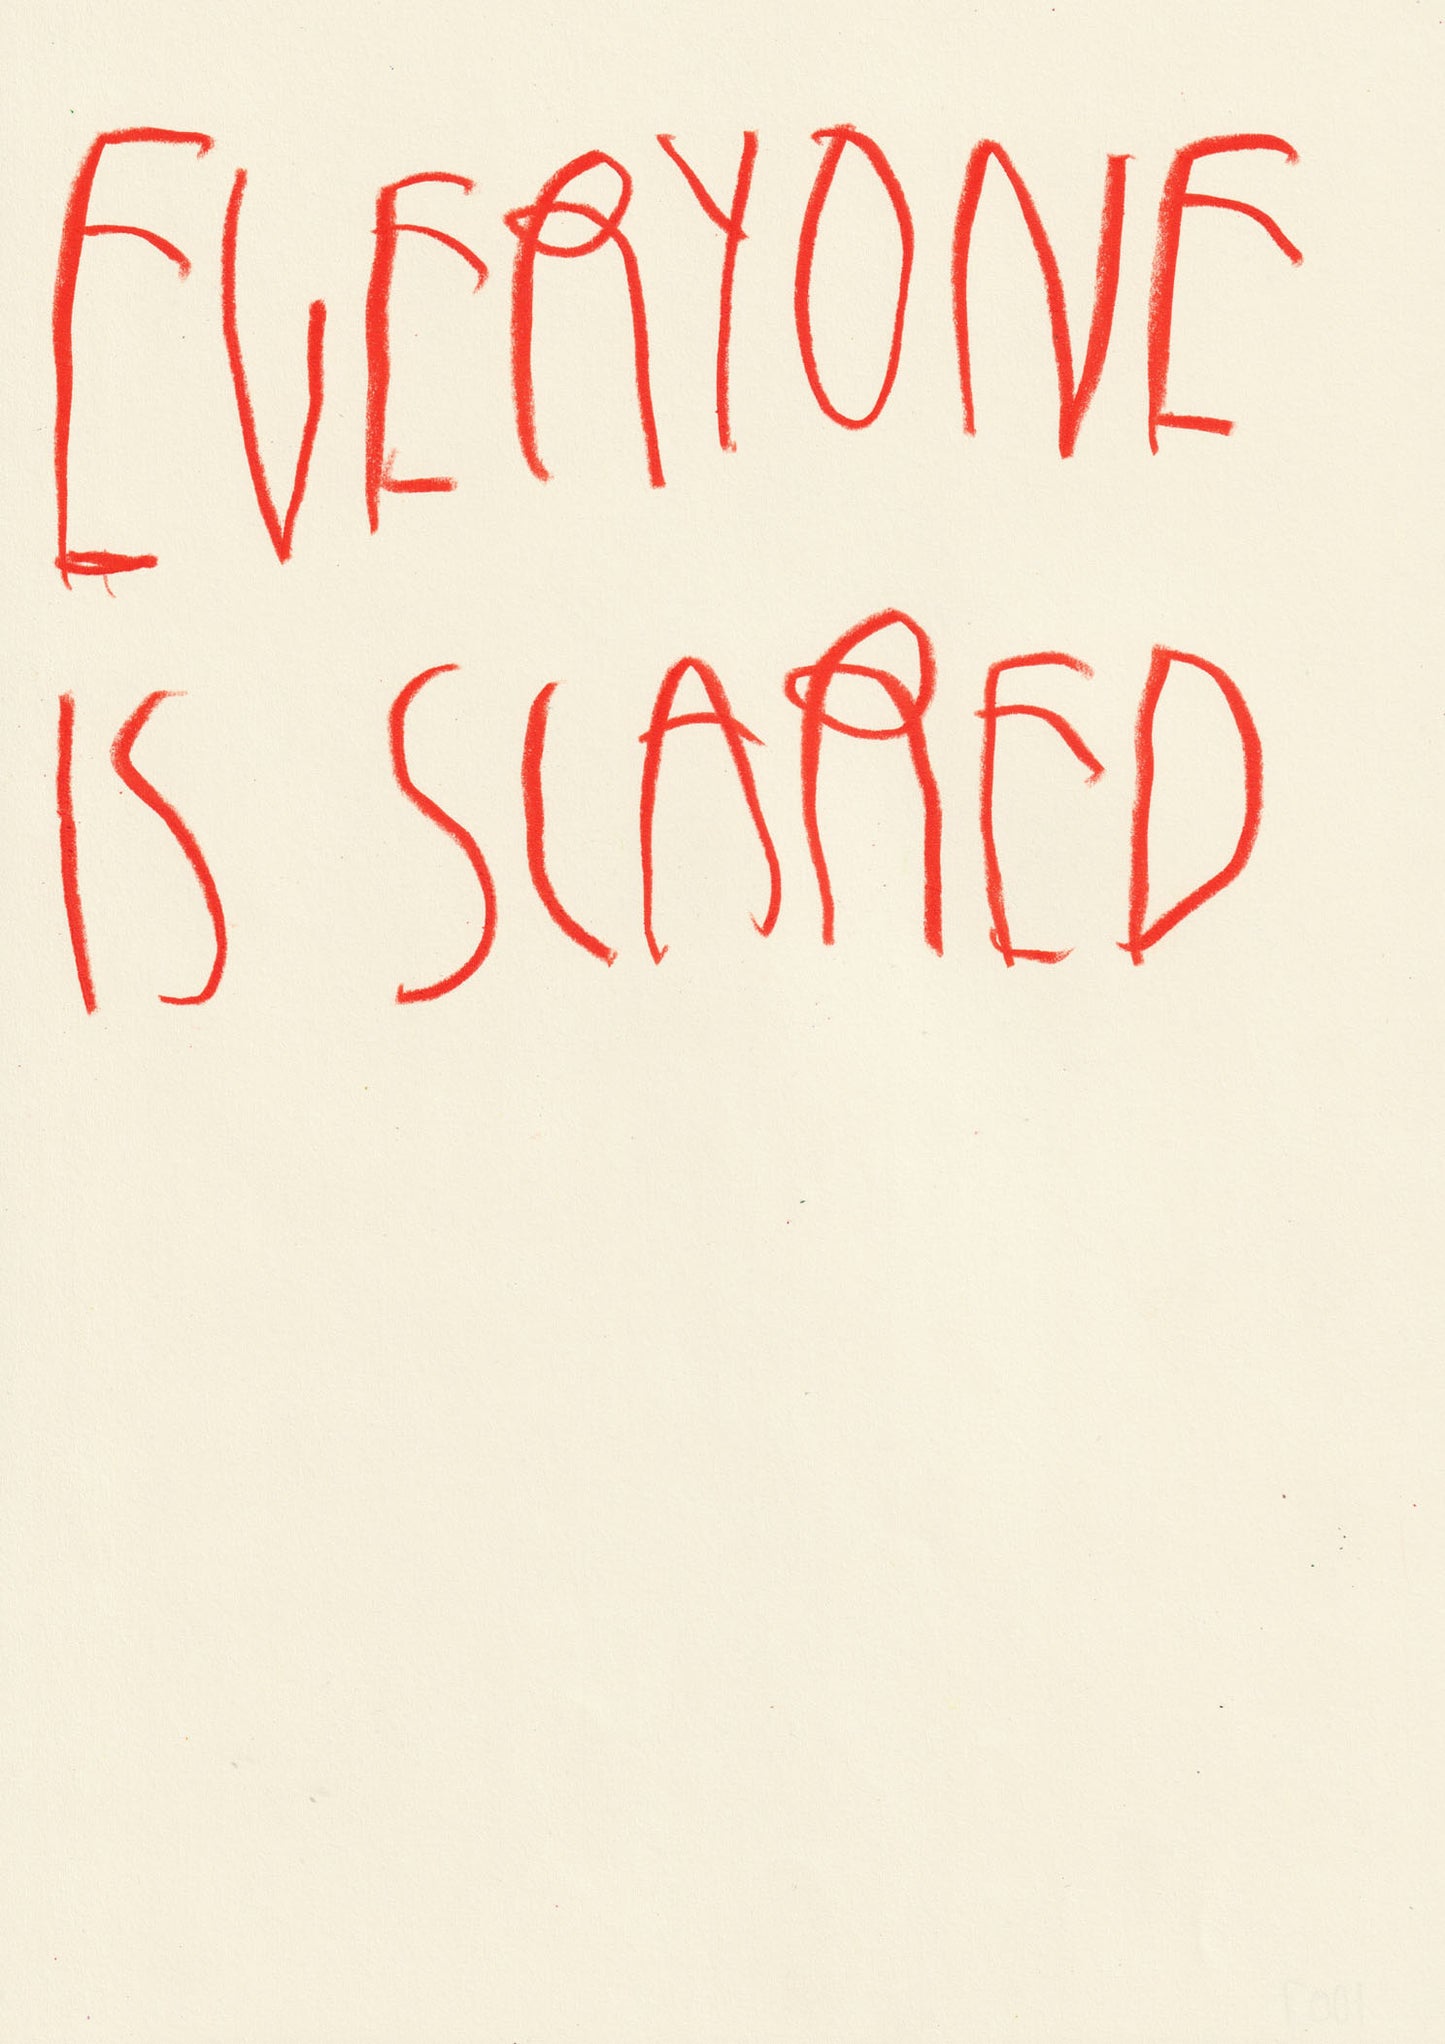 EVERYONE
IS SCARED